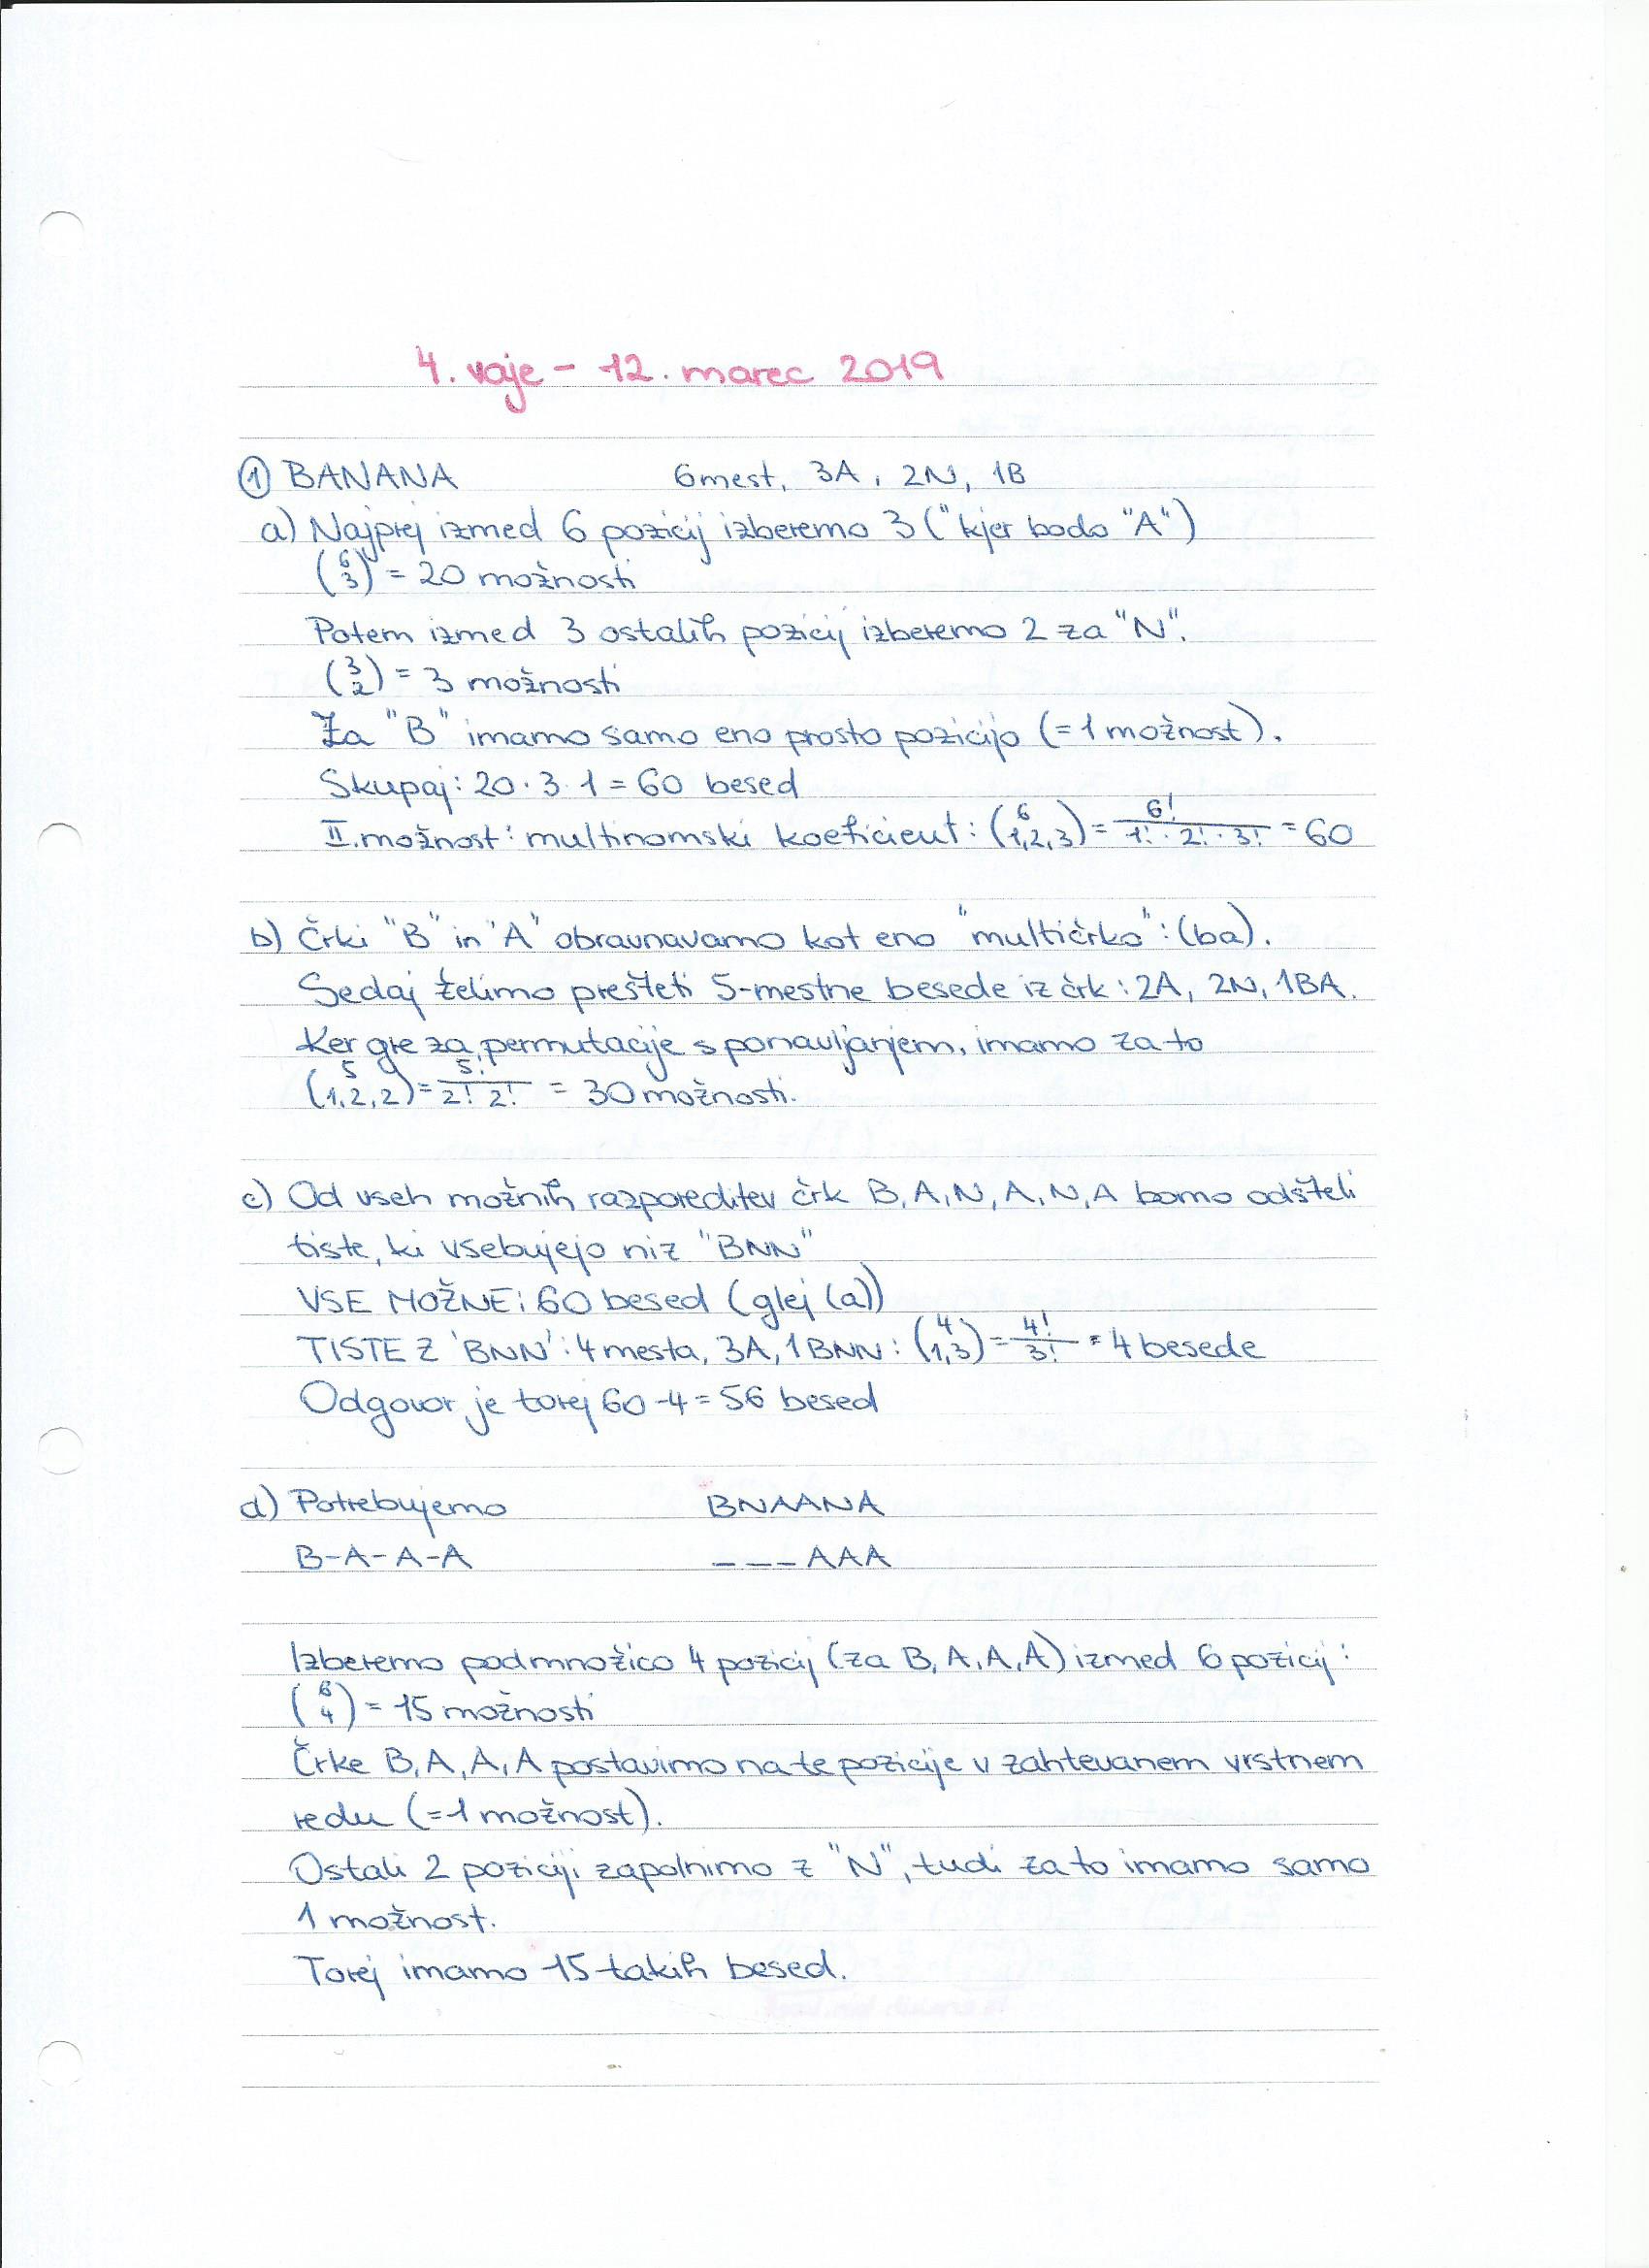 4. vaje - 12. marec 2019
① BANANA 6 mest, 3A, 2N, 1B
a) Najprej izmed 6 pozicij izberemo 3 ("kjer bodo "A")
(6 3) = 20 možnosti
Potem izmed 3 ostalih pozicij izberemo 2 za "N".
(3 2) = 3 možnosti
Za "B" imamo samo eno prosto pozicijo (=1 možnost).
Skupaj: 20 · 3 · 1 = 60 besed
II. možnost: multinomski koeficient: (6 1,2,3) = 6!/(1! · 2! · 3!) = 60
b) Črki "B" in "A" obravnavamo kot eno "multičrko": (ba).
Sedaj želimo prešteti 5-mestne besede iz črk: 2A, 2N, 1BA.
Ker gre za permutacije s ponavljanjem, imamo za to
(5 1,2,2) = 5!/(2! 2!) = 30 možnosti.
c) Od vseh možnih razporeditev črk B, A, N, A, N, A bomo odšteli
tiste, ki vsebujejo niz "BNN"
VSE MOŽNE: 60 besed (glej (a))
TISTE Z 'BNN': 4 mesta, 3A, 1BNN: (4 1,3) = 4!/3! = 4 besede
Odgovor je torej 60-4 = 56 besed
d) Potrebujemo BNAANA
B-A-A-A _ _ _ AAA
Izberemo podmnožico 4 pozicij (za B, A, A, A) izmed 6 pozicij:
(6 4) = 15 možnosti
Črke B, A, A, A postavimo na te pozicije v zahtevanem vrstnem
redu (=1 možnost).
Ostali 2 poziciji zapolnimo z "N", tudi za to imamo samo
1 možnost.
Torej imamo 15 takih besed.